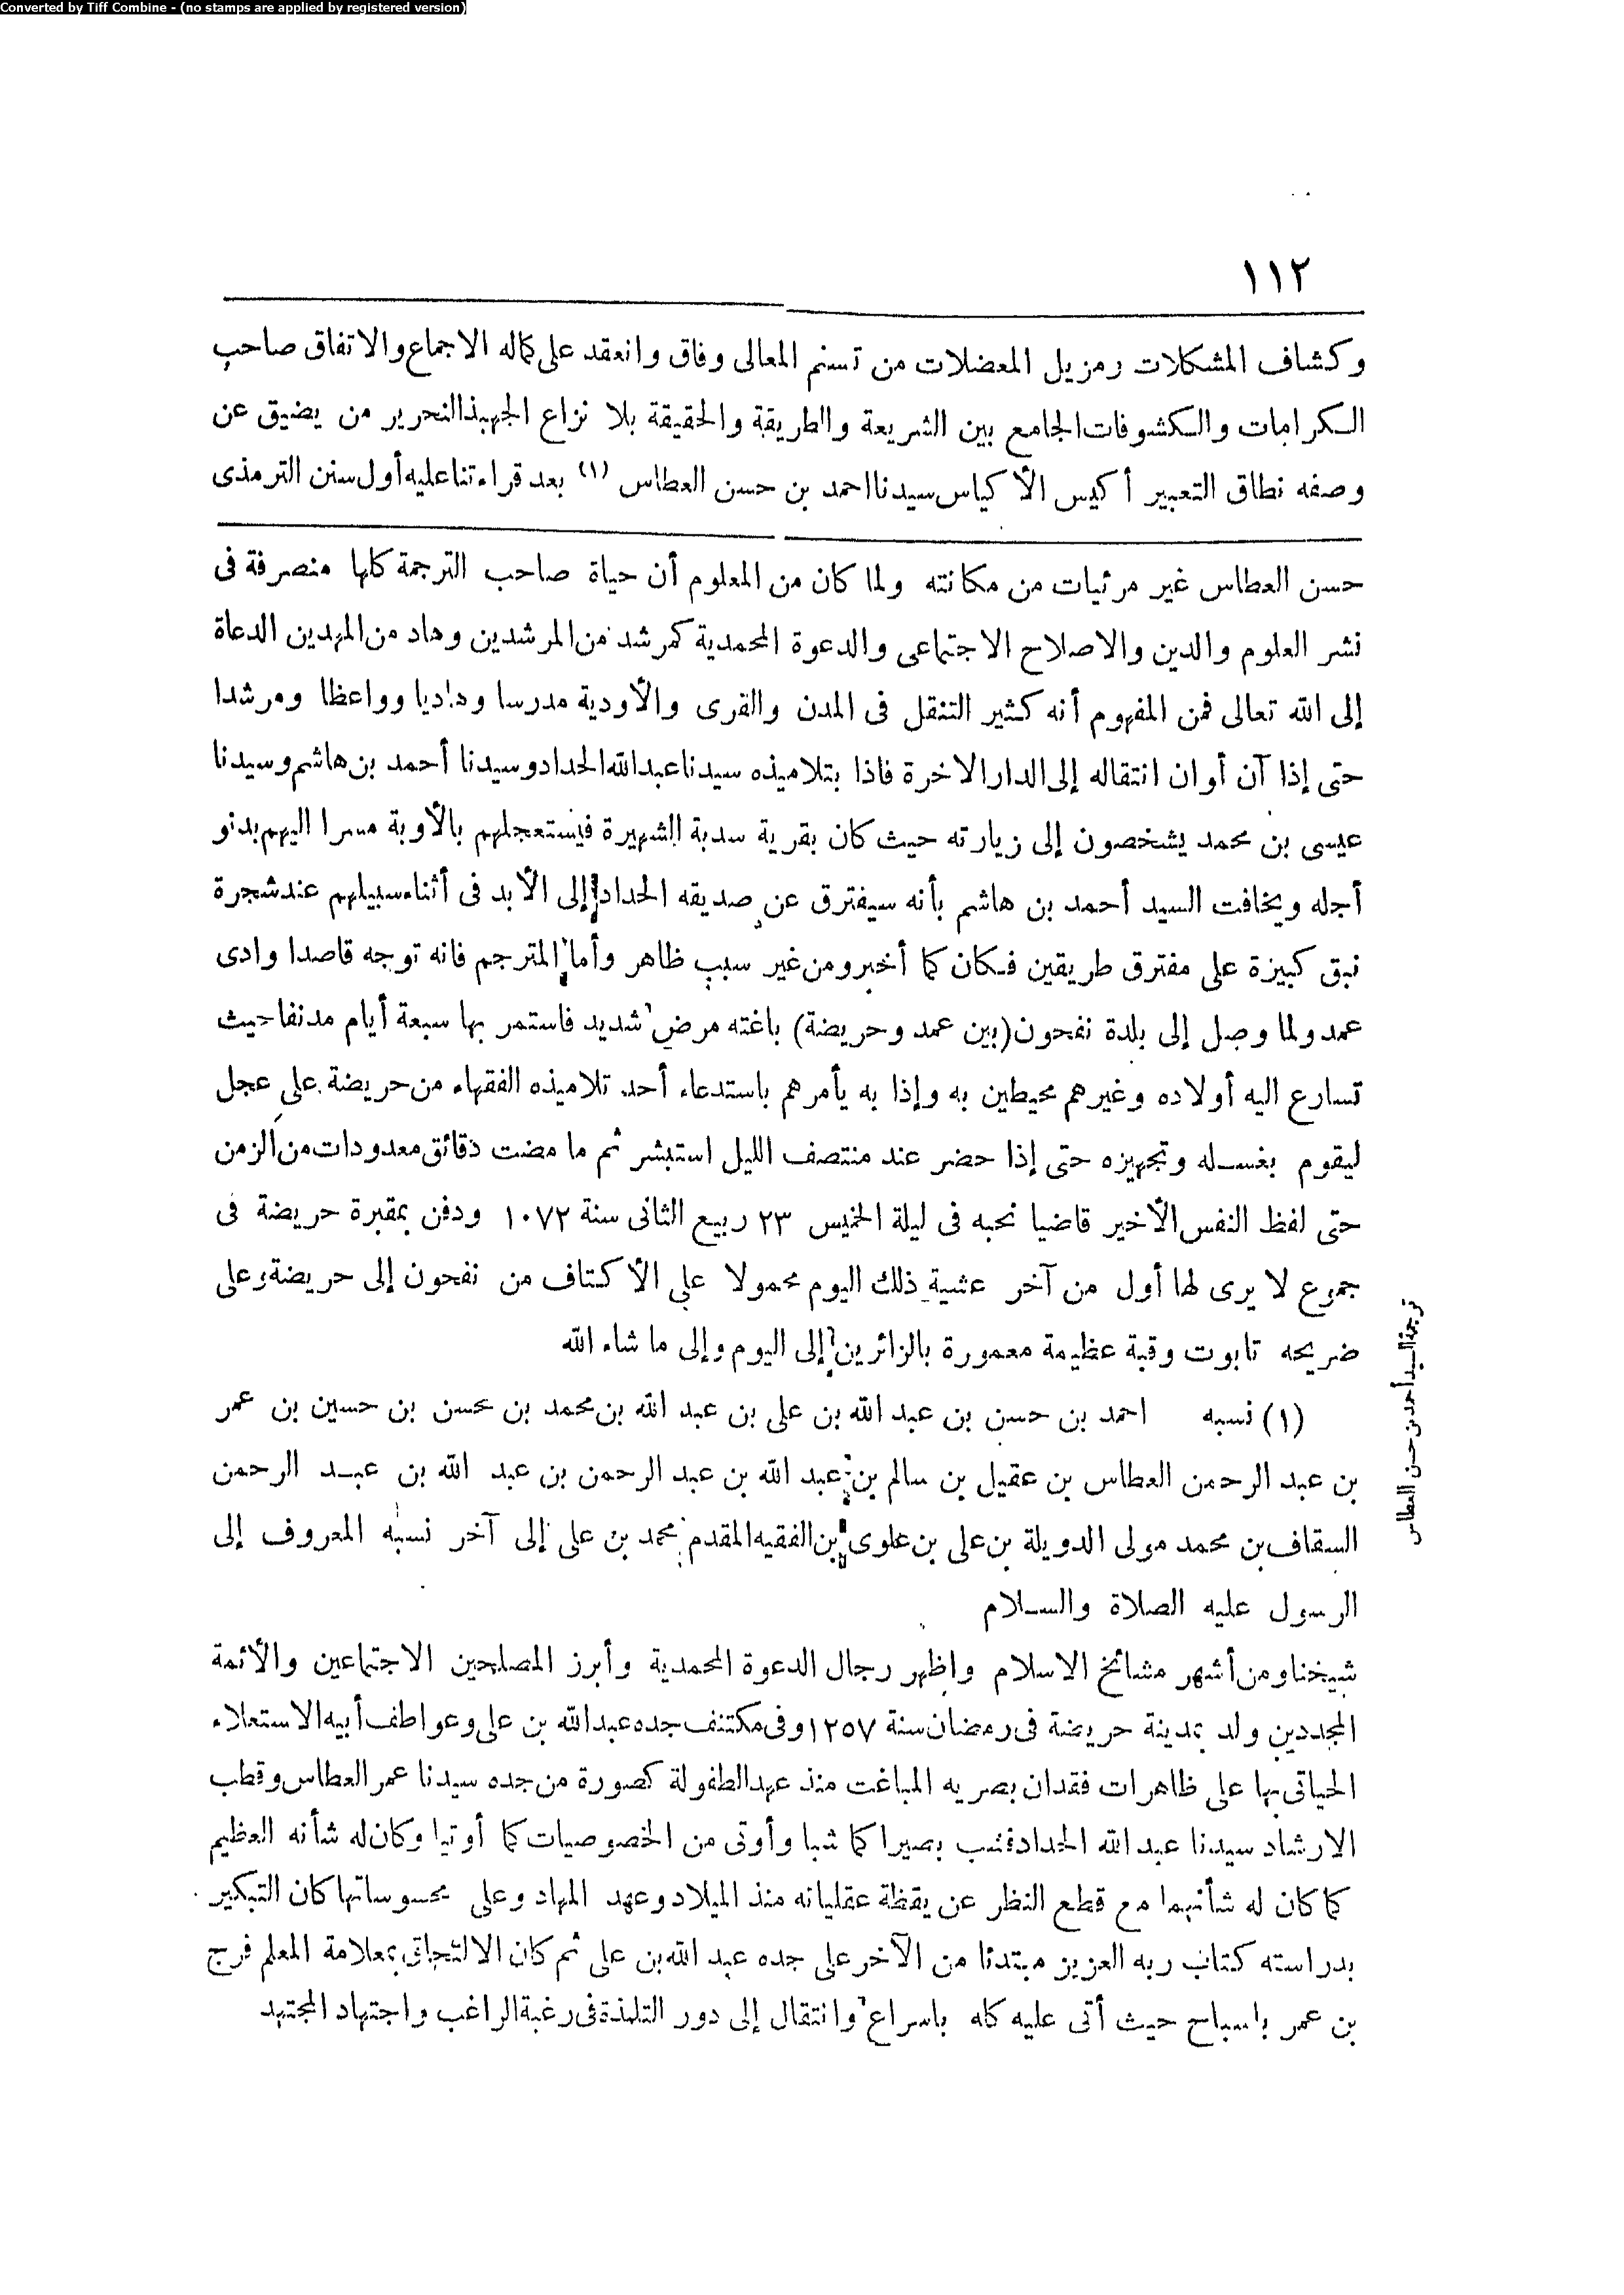 Converted by Tiff Combine - (no stamps are applied by registered version)
١١٢
وكشاف المشكلات ومزيل المعضلات من تسنم المعالى وفاق وانعقد على كماله الاجماع والاتفاق صاحب
الكرامات والكشوفات الجامع بين الشريعة والطريقة والحقيقة بلا نزاع الجهبذ النحرير من يضيق عن
وصفه نطاق التعبير أكيس الأكياس سيدنا احمد بن حسن العطاس (١) بعد قراءتنا عليه أول سنن الترمذى
حسن العطاس غير مرئيات من مكانته ولما كان من المعلوم أن حياة صاحب الترجمة كلها منصرفة فى
نشر العلوم والدين والاصلاح الاجتماعى والدعوة المحمدية كمرشد من المرشدين وهاد من المهدين الدعاة
إلى الله تعالى فمن المفهوم أنه كثير التنقل فى المدن والقرى والأودية مدرسا وهاديا وواعظا ومرشدا
حتى إذا آن أوان انتقاله إلى الدار الاخرة فاذا بتلاميذه سيدنا عبد الله الحداد وسيدنا أحمد بن هاشم وسيدنا
عيسى بن محمد يشخصون إلى زيارته حيث كان بقرية سدبة الشهيرة فيستعجلهم بالأوبة مسرا اليهم بدنو
أجله ويخافت السيد أحمد بن هاشم بأنه سيفترق عن صديقه الحداد إلى الأبد فى أثناء سبيلهم عند شجرة
نبق كبيرة على مفترق طريقين فكان كما أخبر ومن غير سبب ظاهر وأما المترجم فانه توجه قاصدا وادى
عمد ولما وصل إلى بلدة نفحون (بين عمد وحريضة) باغته مرض شديد فاستمر بها سبعة أيام مدنفا حيث
تسارع اليه أولاده وغيرهم محيطين به وإذا به يأمرهم باستدعاء أحد تلاميذه الفقهاء من حريضة على عجل
ليقوم بغسله وتجهيزه حتى إذا حضر عند منتصف الليل استبشر ثم ما مضت دقائق معدودات من الزمن
حتى لفظ النفس الأخير قاضيا نحبه فى ليلة الخميس ٢٣ ربيع الثانى سنة ١٠٧٢ ودفن بمقبرة حريضة فى
جموع لا يرى لها أول من آخر عشية ذلك اليوم محمولا على الأكتاف من نفحون إلى حريضة وعلى
ضريحه تابوت وقبة عظيمة معمورة بالزائرين إلى اليوم وإلى ما شاء الله
(١) نسبه احمد بن حسن بن عبد الله بن على بن عبد الله بن محمد بن محسن بن حسين بن عمر
بن عبد الرحمن العطاس بن عقيل بن سالم بن عبد الله بن عبد الرحمن بن عبد الله بن عبد الرحمن
السقاف بن محمد مولى الدويلة بن على بن علوى بن الفقيه المقدم محمد بن على إلى آخر نسبه المعروف إلى
الرسول عليه الصلاة والسلام
شيخنا ومن أشهر مشائخ الاسلام واظهر رجال الدعوة المحمدية وأبرز المصلحين الاجتماعين والأئمة
المجددين ولد بمدينة حريضة فى رمضان سنة ١٢٥٧ وفى مكتنف جده عبد الله بن على وعواطف أبيه الاستعلاء
الحياتى بها على ظاهرات فقدان بصريه المباغت منذ عهد الطفولة كصورة من جده سيدنا عمر العطاس وقطب
الارشاد سيدنا عبد الله الحداد فشب بصيرا كما شبا وأوتى من الخصوصيات كما أوتيا وكان له شأنه العظيم
كما كان له شأنهما مع قطع النظر عن يقظة عقلياته منذ الميلاد وعهد المهاد وعلى محسوساتها كان التبكير
بدراسته كتاب ربه العزيز مبتدئا من الآخر على جده عبد الله بن على ثم كان الالتحاق بمعلامة المعلم فرج
بن عمر باسباح حيث أتى عليه كله باسراع وانتقال إلى دور التلمذة فى رغبة الراغب واجتهاد المجتهد
ترجمة السيد أحمد بن حسن العطاس